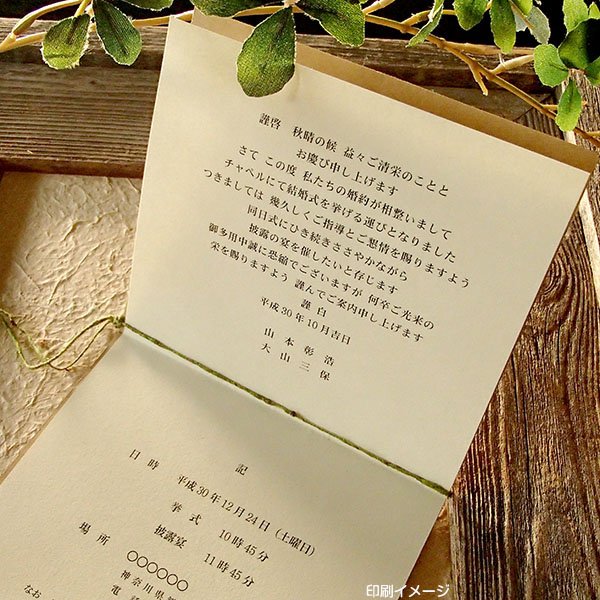 謹啓 秋晴の候 益々ご清栄のことと
お慶び申し上げます
さて この度 私たちの婚約が相整いまして
チャペルにて結婚式を挙げる運びとなりました
つきましては 幾久しくご指導とご懇情を賜りますよう
同日式にひき続きささやかながら
披露の宴を催したいと存じます
御多用中誠に恐縮でございますが 何卒ご光来の
栄を賜りますよう 謹んでご案内申し上げます
謹白
平成30年10月吉日
山本彰浩
大山三保
記
日時 平成30年12月24日(土曜日)
挙式 10時45分
披露宴 11時45分
場所 〇〇〇〇〇〇
神奈川県
電
なお
印刷イメージ